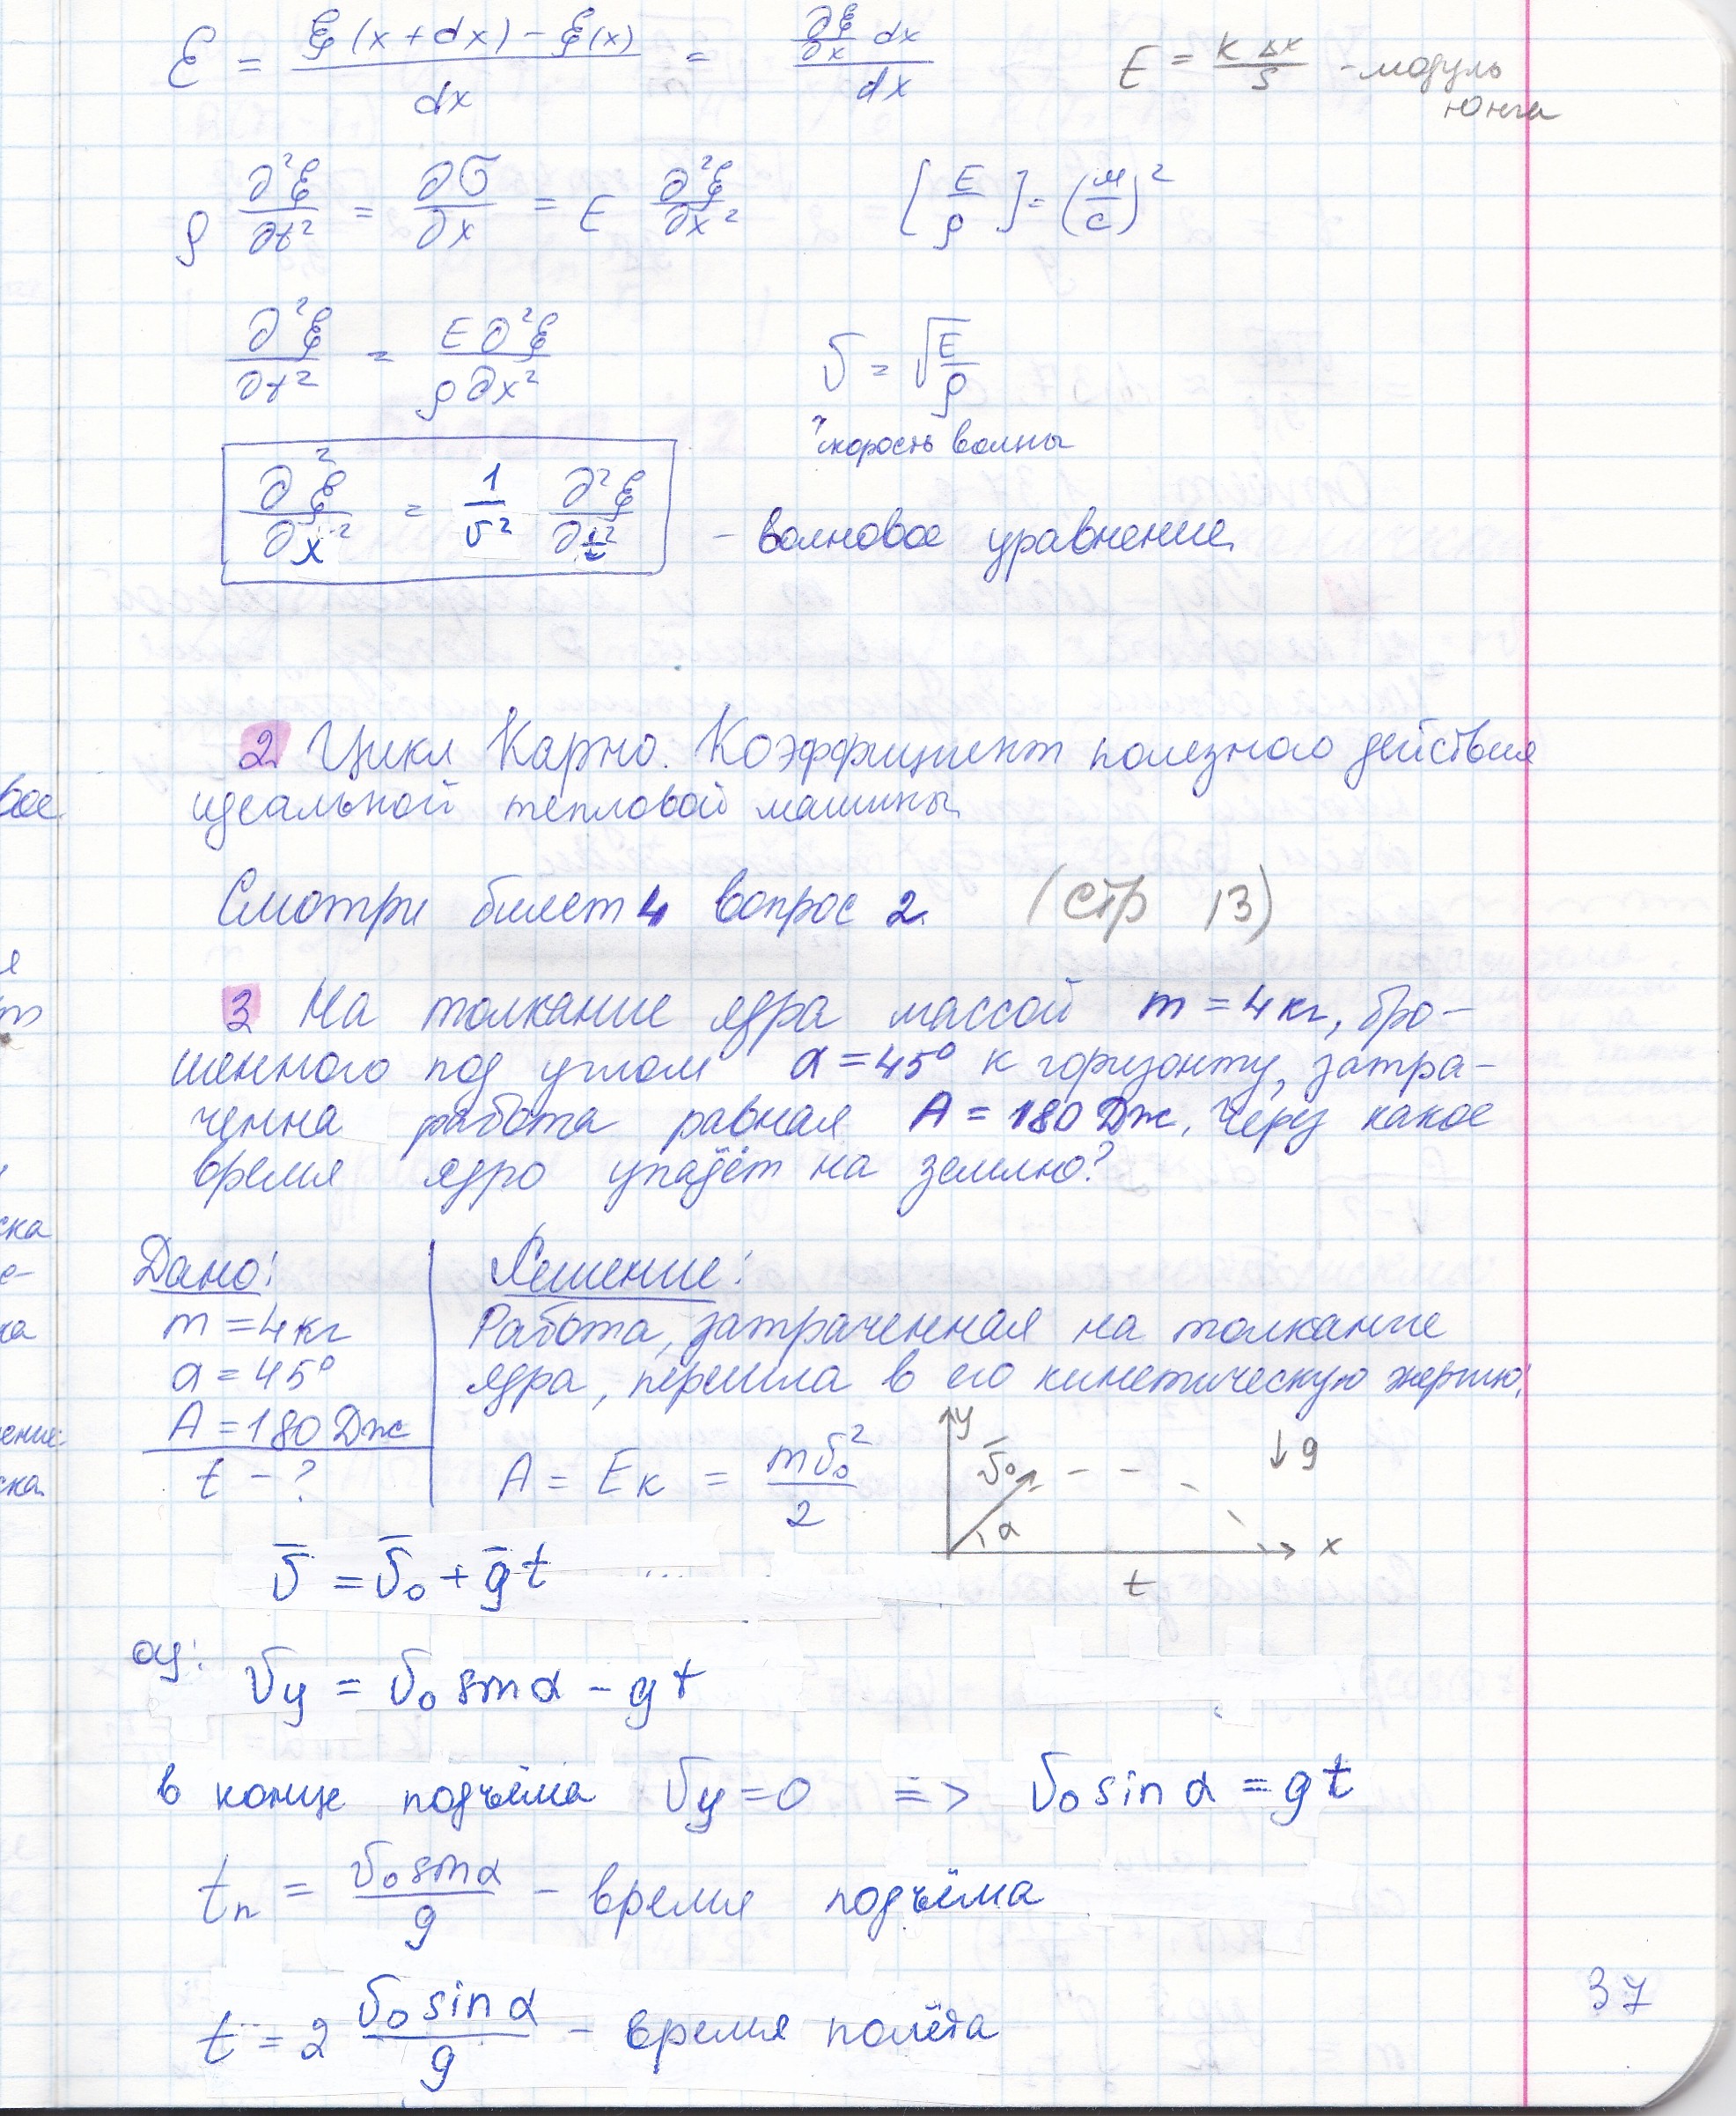 ε = (ξ(x+dx) − ξ(x)) / dx = (∂ξ/∂x dx) / dx     E = k Δx / S - модуль
юнга
ρ ∂²ξ/∂t² = ∂σ/∂x = E ∂²ξ/∂x²     [E/ρ] = (м/с)²
∂²ξ/∂t² = E∂²ξ / ρ∂x²     υ = √(E/ρ)
скорость волны
∂²ξ/∂x² = 1/υ² ∂²ξ/∂t² - волновое уравнение
2. Цикл Карно. Коэффициент полезного действия
идеальной тепловой машины
Смотри билет 4 вопрос 2. (стр 13)
3 На толкание ядра массой m = 4 кг, бро-
шенного под углом α = 45° к горизонту, затра-
ченна работа равная A = 180 Дж. Через какое
время ядро упадёт на землю?
Дано:     Решение:
m = 4 кг     Работа, затраченная на толкание
α = 45°     ядра, перешла в его кинетическую энергию.
A = 180 Дж
t - ?     A = Eк = mυ₀²/2
y     υ̅₀     α     ↓g     x     t
υ̅ = υ̅₀ + g̅t
oy:
υy = υ₀ sin α − gt
в конце подъёма υy = 0 => υ₀ sin α = gt
tп = υ₀ sin α / g - время подъёма
t = 2 υ₀ sin α / g - время полёта
37
вое
я
т
ска
е-
ка
ение:
ска